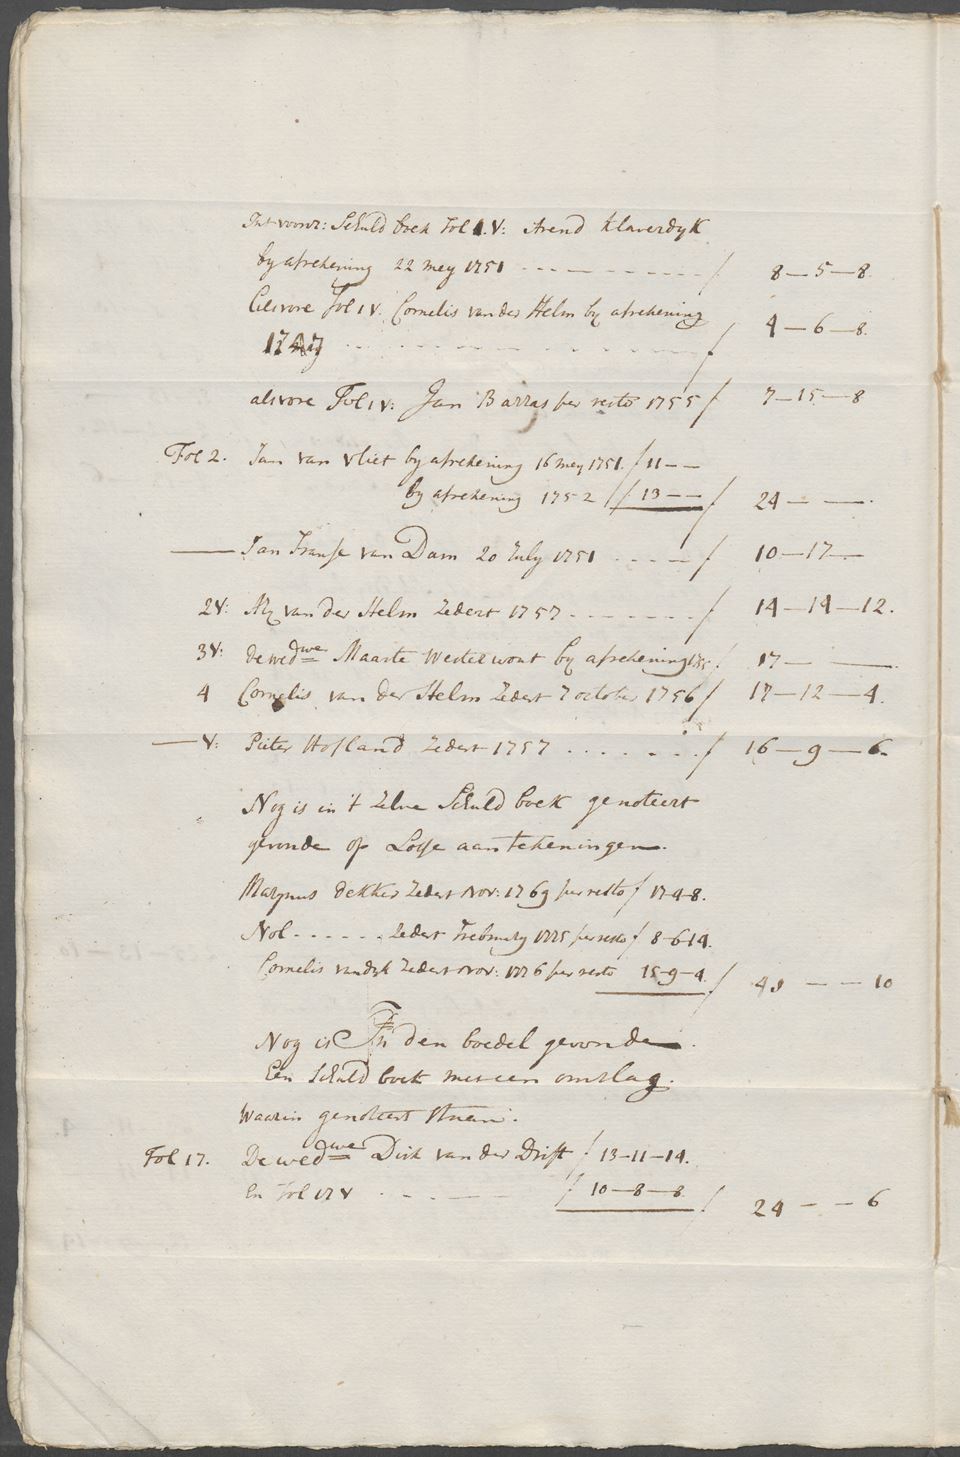 Int voorz: Schuld boek Fol 1. V: Arend Klaverdyk
by afrekening 22 mey 1751 / 8-5-8.
alsvore Fol 1 V. Cornelis van der Helm by afrekening
1747 / 4-6-8.
alsvore Fol 1 V: Jan Barras per resto 1755 / 7-15-8
Fol 2. Jan van Vliet by afrekening 16 mey 1751. / 11--
by afrekening 1752 / 13-- / 24--.
— Jan Franse van Dam 20 July 1751 / 10-17-
2V: van der Helm Zedert 1757 / 14-14-12.
3V: de wedwe Maarte Westerwout by afrekening / 17--.
4 Cornelis van der Helm Zedert 7 october 1756 / 17-12-4.
— V: Pieter Hofland Zedert 1757 / 16-9-6.
Nog is in 't Zelve Schuld boek genoteert
gevonde op Losse aantekeningen.
Marynus dekker Zedert nov: 1769 per resto / 17-4-8.
Nol Zedert February 1775 per resto / 8-6-14.
Cornelis van dyk Zedert nov: 1776 per resto 15-9-4. / --10
Nog is In den boedel gevonde.
Een Schuld boek met een omslag.
Waarin genoteert staan.
Fol 17. De wedwe Dirk van der Drift / 13-11-14.
En Fol 17 V / 10-8-8 / 24--6